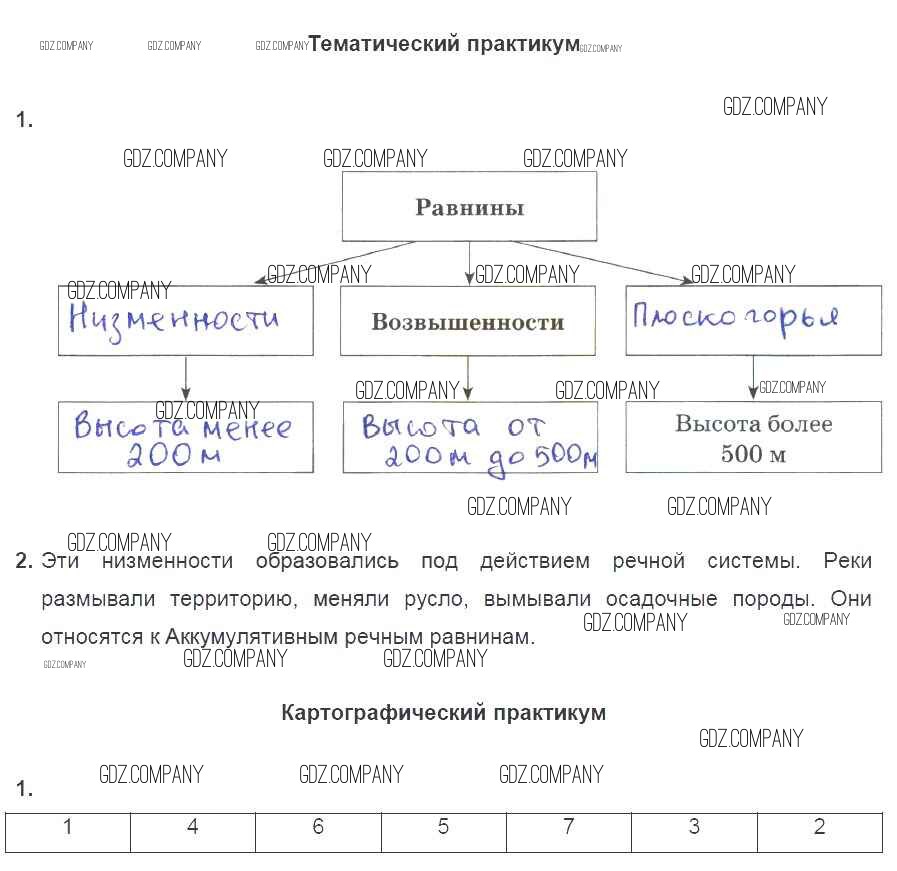 GDZ.COMPANY GDZ.COMPANY GDZ.COMPANY Тематический практикум GDZ.COMPANY
GDZ.COMPANY
1.
GDZ.COMPANY GDZ.COMPANY GDZ.COMPANY
Равнины
GDZ.COMPANY GDZ.COMPANY GDZ.COMPANY GDZ.COMPANY
Низменности Возвышенности Плоскогорья
GDZ.COMPANY GDZ.COMPANY GDZ.COMPANY
GDZ.COMPANY
Высота менее Высота от Высота более
200м 200м до 500м 500 м
GDZ.COMPANY GDZ.COMPANY
GDZ.COMPANY GDZ.COMPANY
2. Эти низменности образовались под действием речной системы. Реки
размывали территорию, меняли русло, вымывали осадочные породы. Они
GDZ.COMPANY GDZ.COMPANY
относятся к Аккумулятивным речным равнинам.
GDZ.COMPANY GDZ.COMPANY GDZ.COMPANY
Картографический практикум
GDZ.COMPANY
GDZ.COMPANY GDZ.COMPANY GDZ.COMPANY
1.
1 4 6 5 7 3 2